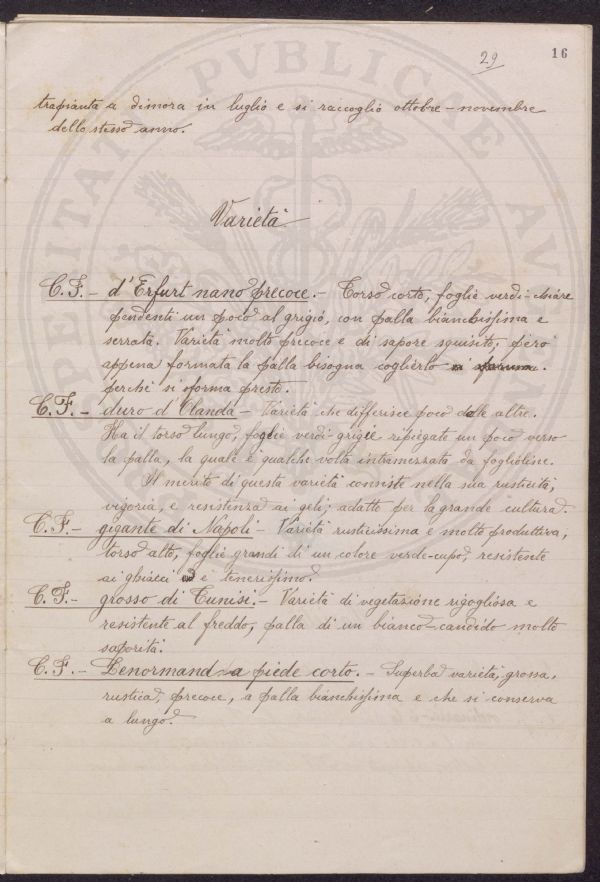 29
16
trapianta a dimora in luglio e si raccoglie ottobre - novembre
dello stesso anno.
Varietà
C.F. - d'Erfurt nano precoce. - Torso corto, foglie verdi-chiare
pendenti un poco al grigio, con palla bianchissima e
serrata. Varietà molto precoce e di sapore squisito; però
appena formata la palla bisogna coglierlo
perchè si sforma presto.
C.F. - duro d'Olanda - Varietà che differisce poco dalle altre.
Ha il torso lungo, foglie verdi-grigie ripiegate un poco verso
la palla, la quale è qualche volta intramezzata da foglioline.
Il merito di questa varietà consiste nella sua rusticità,
vigoria, e resistenza ai geli; adatto per la grande cultura.
C.F. - gigante di Napoli - Varietà rusticissima e molto produttiva,
torso alto, foglie grandi di un colore verde-cupo, resistente
ai ghiacci e tenerissimo.
C.F. - grosso di Tunisi. - Varietà di vegetazione rigogliosa e
resistente al freddo, palla di un bianco-candido molto
saporita.
C.F. - Lenormand a piede corto. - Superba varietà, grossa,
rustica, precoce, a palla bianchissima e che si conserva
a lungo.
PUBLICAE